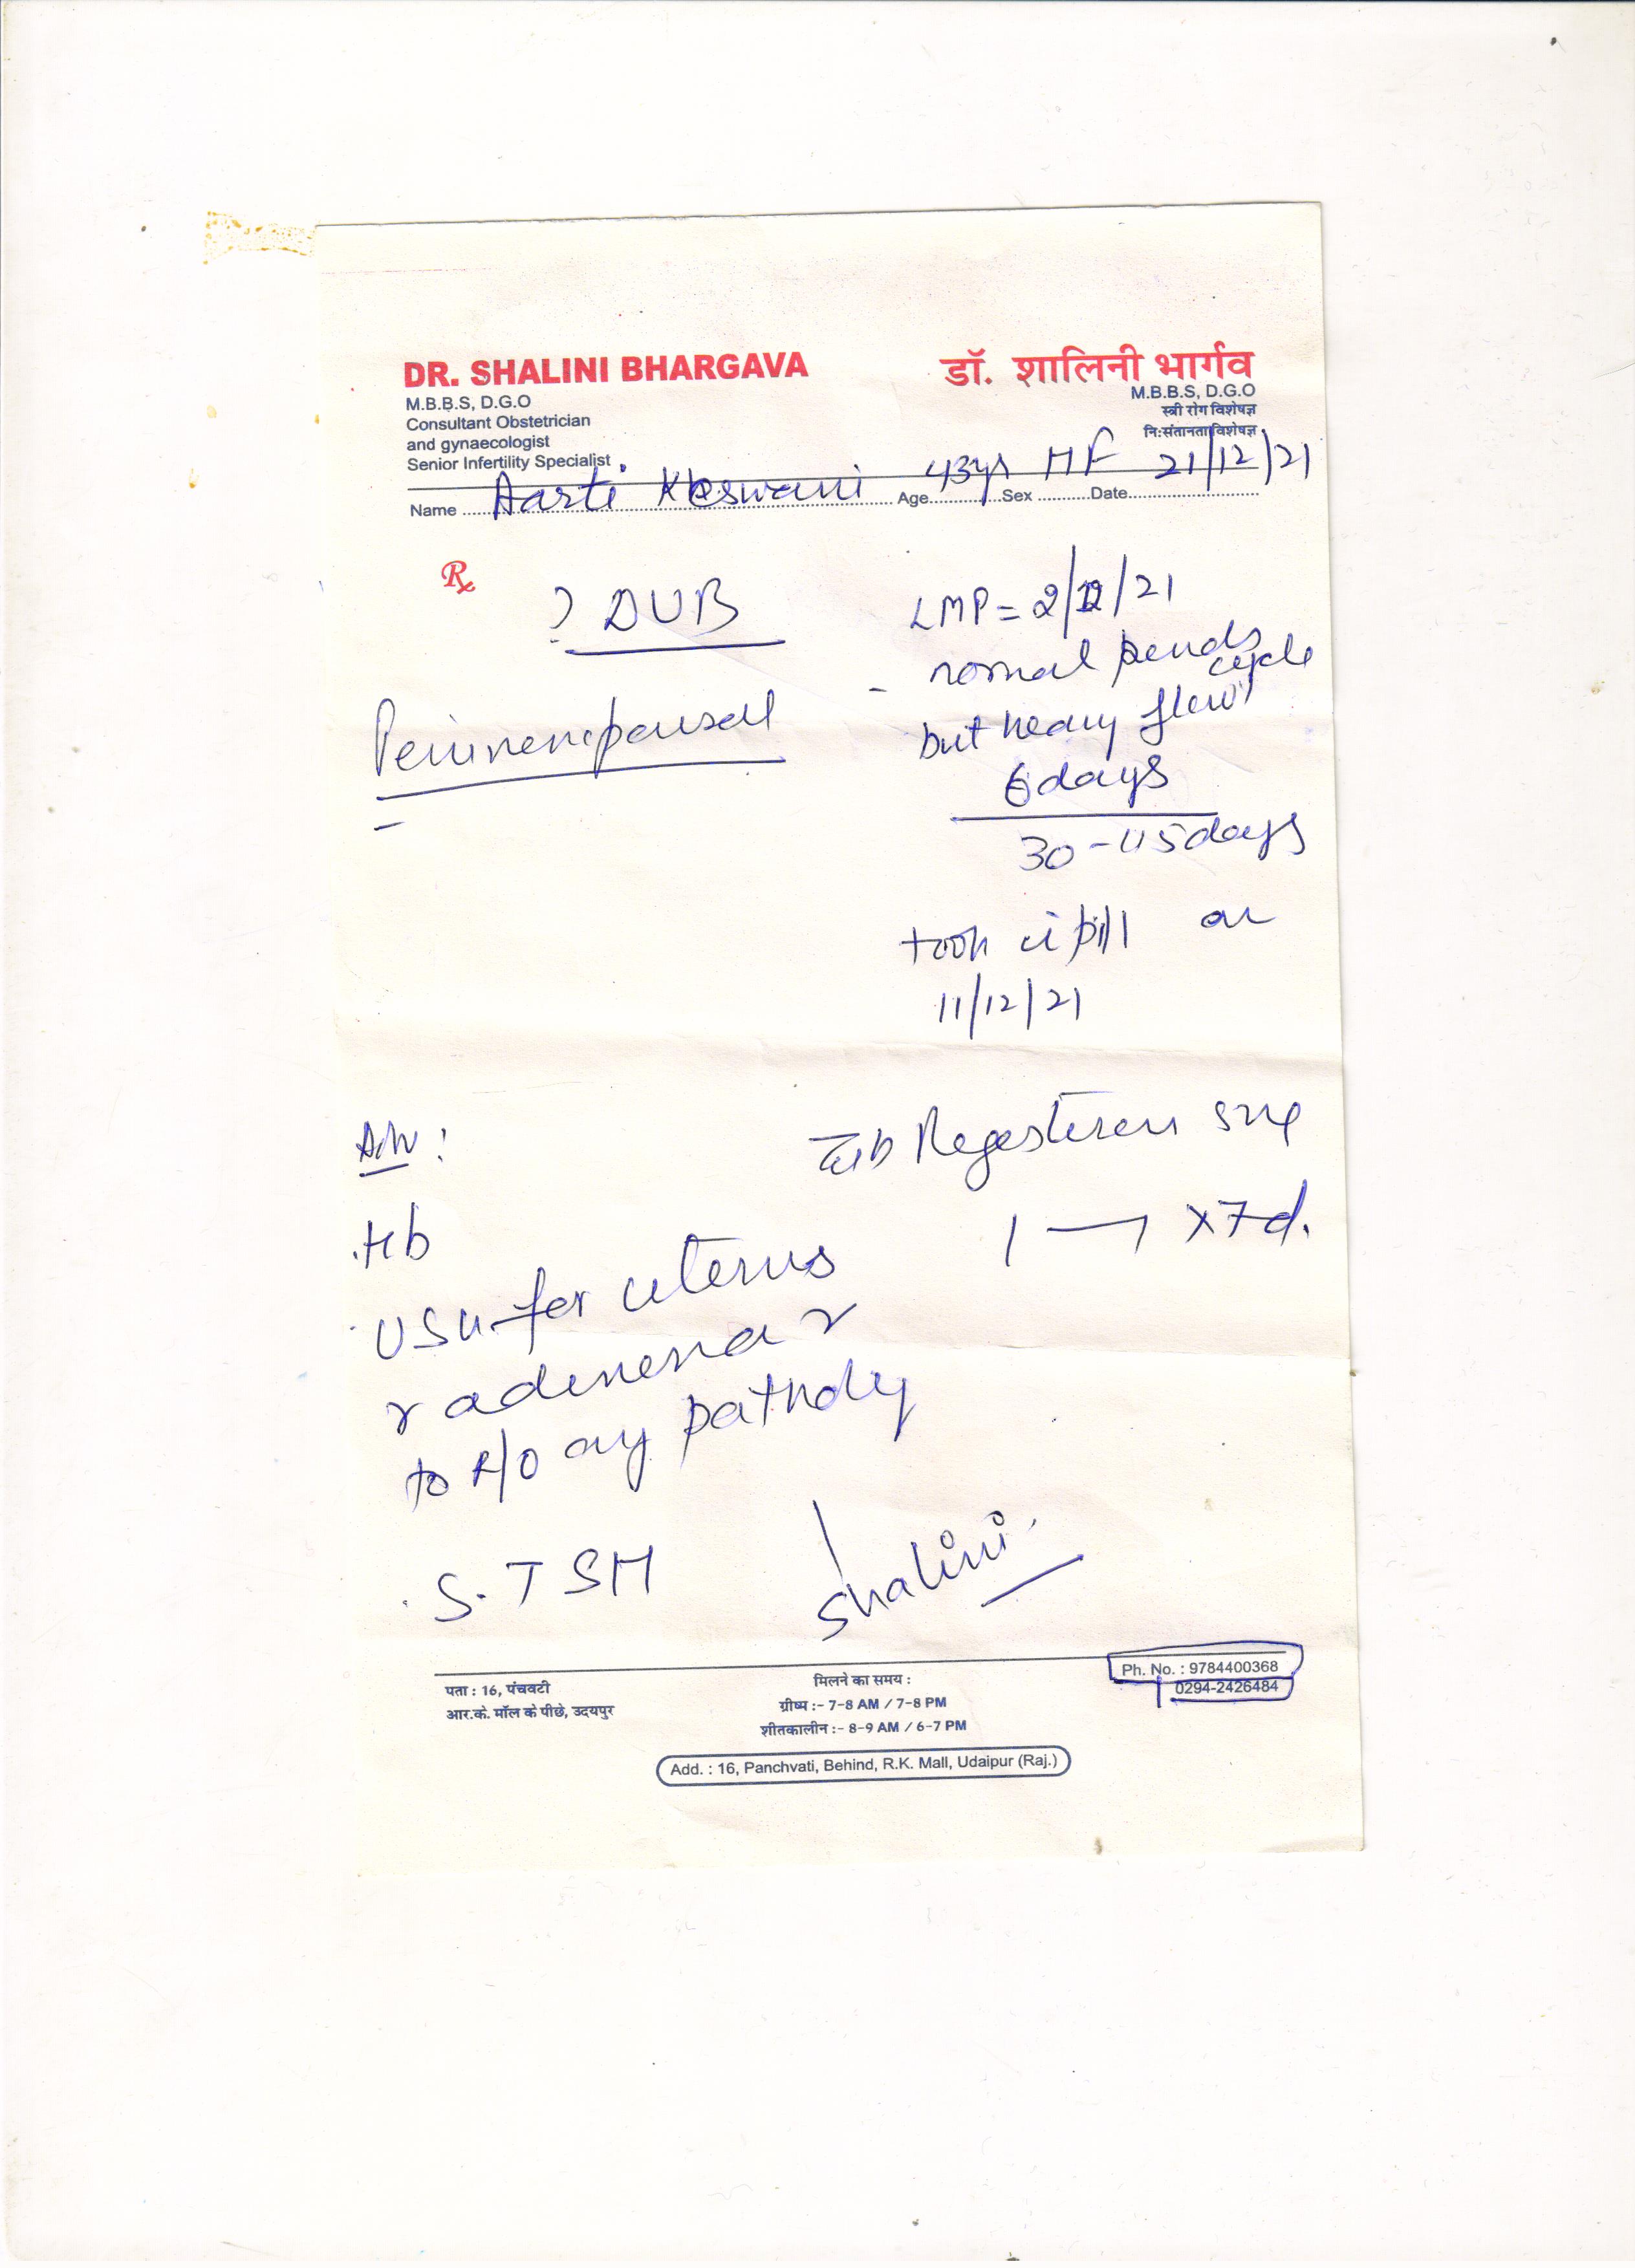 DR. SHALINI BHARGAVA
M.B.B.S, D.G.O
Consultant Obstetrician
and gynaecologist
Senior Infertility Specialist
डॉ. शालिनी भार्गव
M.B.B.S, D.G.O
स्त्री रोग विशेषज्ञ
नि:संतानता विशेषज्ञ
Name Aarti Keswani Age 43ys Sex MF Date 21/12/21
Rx
? DUB
Perimenopausal
LMP = 2/12/21
- normal periods
cycle
but heavy flow
6 days
30-45 days
took i pill on
11/12/21
Adv :
Tab Regesterone 5mg
1 — 1 x 7 d.
. Hb
. USG for uterus
r adenexa r
to R/O any pathology
. S. TSH
Shalini
पता : 16, पंचवटी
आर.के. मॉल के पीछे, उदयपुर
मिलने का समय :
ग्रीष्म :- 7-8 AM / 7-8 PM
शीतकालीन :- 8-9 AM / 6-7 PM
Ph. No. : 9784400368
0294-2426484
Add. : 16, Panchvati, Behind, R.K. Mall, Udaipur (Raj.)